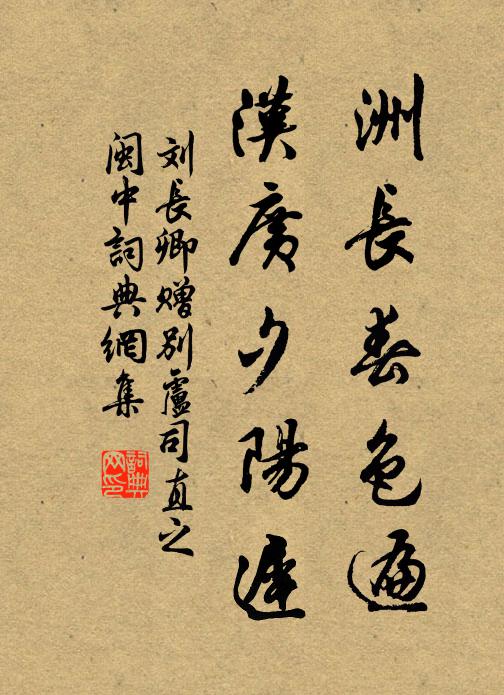 洲長春色遍
漢廣夕陽遲
刘長卿贈别盧司直之
閩中詞典網集
詞典
网印